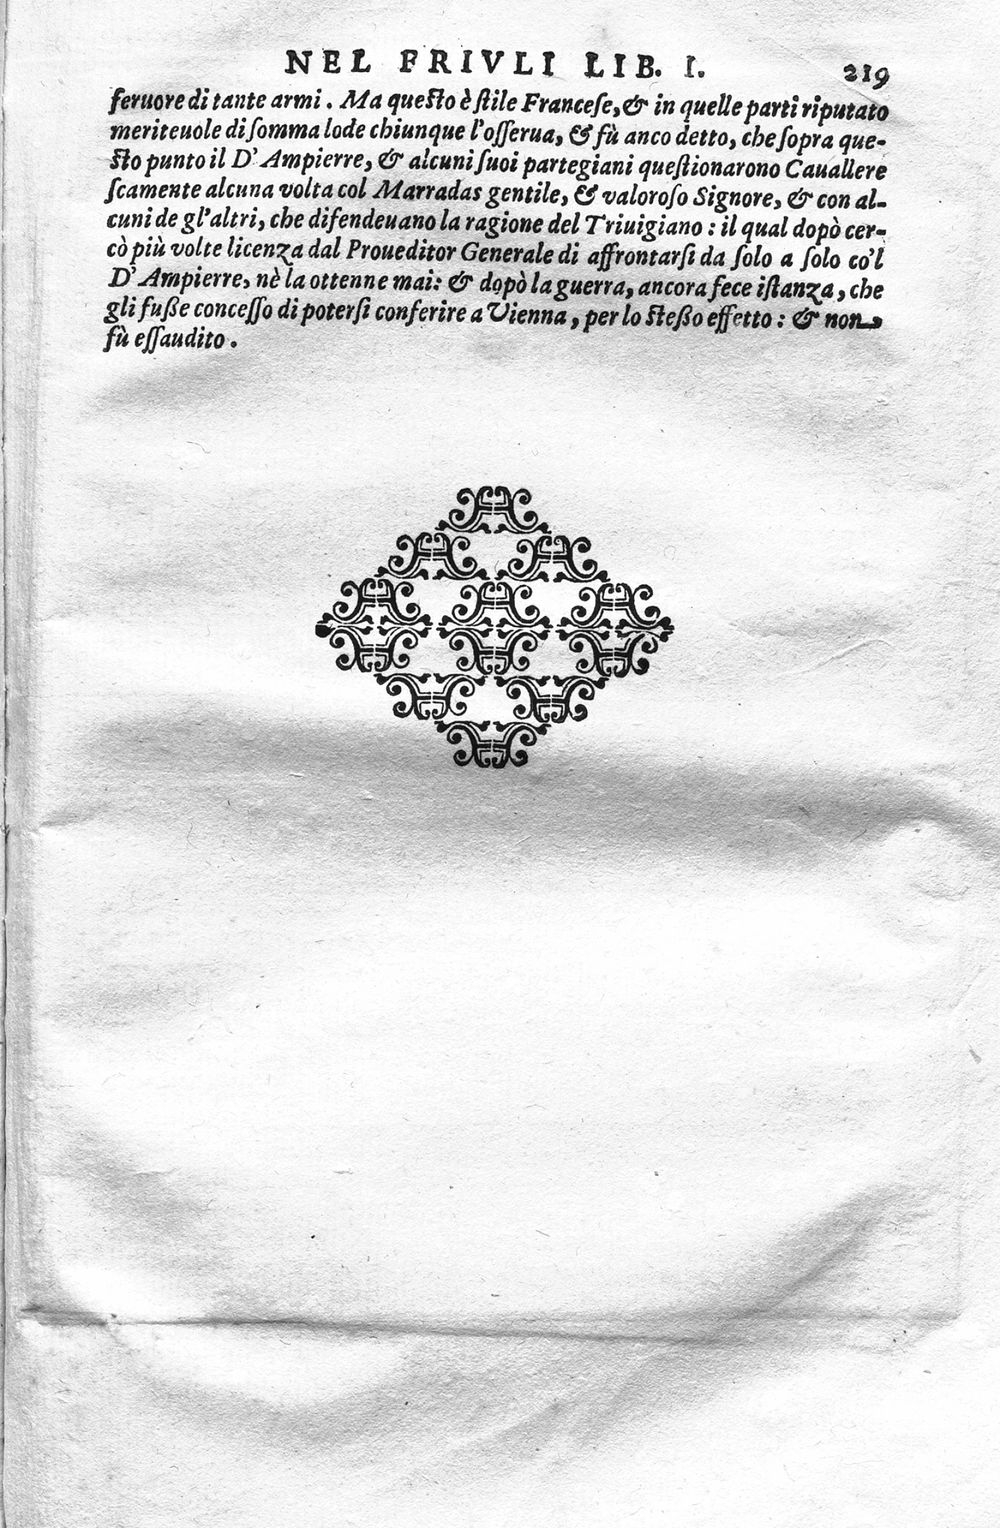 NEL FRIVLI LIB. I. 219
feruore di tante armi. Ma questo è stile Francese, & in quelle parti riputato
meriteuole di somma lode chiunque l'osserua, & fù anco detto, che sopra que-
sto punto il D'Ampierre, & alcuni suoi partegiani questionarono Cauallere
scamente alcuna volta col Marradas gentile, & valoroso Signore, & con al-
cuni de gl'altri, che difendeuano la ragione del Triuigiano : il qual dopò cer-
cò più volte licenza dal Proueditor Generale di affrontarsi da solo a solo co'l
D'Ampierre, nè la ottenne mai: & dopò la guerra, ancora fece istanza, che
gli fuße concesso di potersi conferire a Vienna, per lo steßo effetto : & non
fù essaudito.